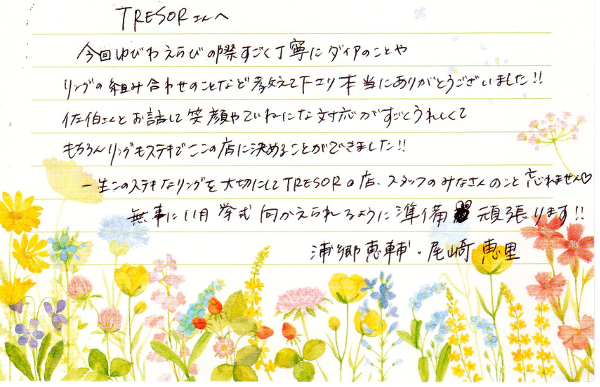 TRESORさんへ
今回ゆびわえらびの際すごく丁寧にダイアのことや
リングの組み合わせのことなど教えて下さり本当にありがとうございました!!
佐伯さんとお話して笑顔やていねいな対応がすごくうれしくて
もちろんリングもステキでここの店に決めることができました!!
一生このステキなリングを大切にしてTRESORの店、スタッフのみなさんのこと忘れません♡
無事に11月挙式向かえられるように準備頑張ります!!
浦郷恵輔・尾崎恵里